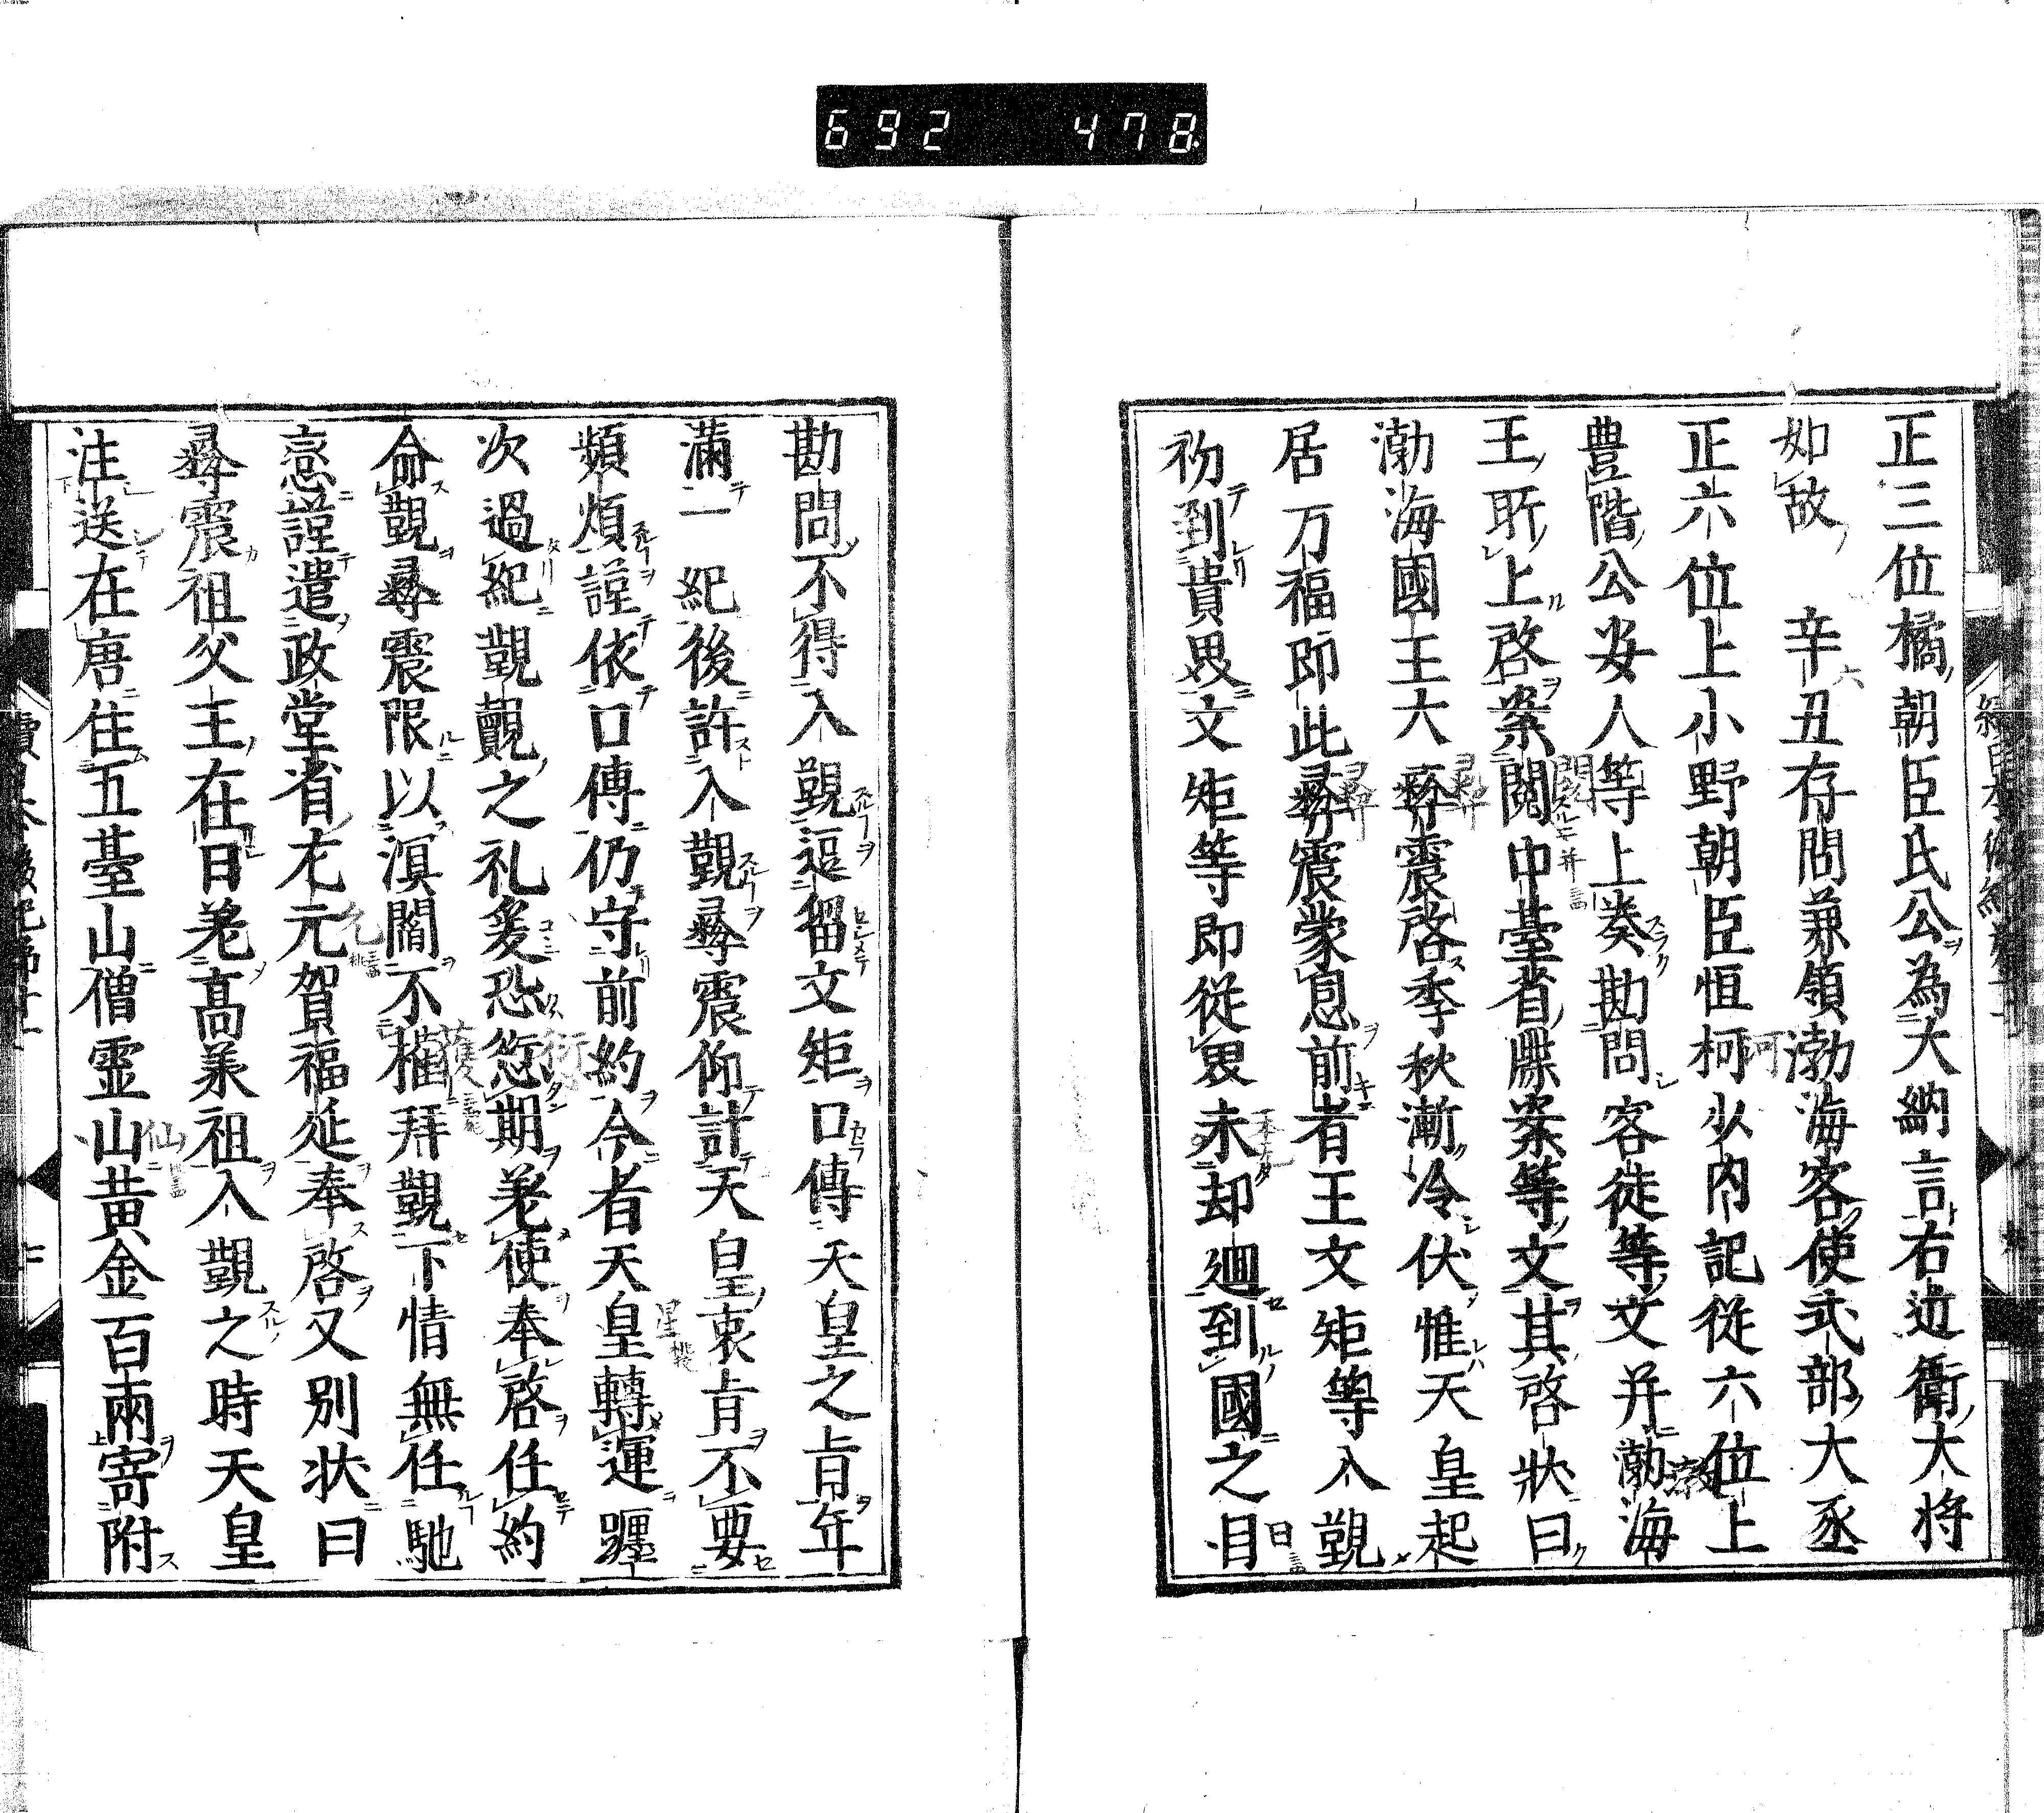 692 478
正三位橘朝臣氏公為大納言右近衛大将
如故 辛丑存問兼領渤海客使式部大丞
正六位上小野朝臣恒柯少内記従六位上
豊階公安人等上奏勘問客徒等文并渤海
王所上啓案閱中臺省牒案等文其啓状曰
渤海國王大彛震啓季秋漸冷伏惟天皇起
居万福即此彛震蒙恩前者王文矩等入覲
初到貴畏文矩等即従畏未却廻到國之目
勘問不得入覲逗留文矩口傳天皇之肯年
滿一紀後許入覲彛震仰計天皇衷肯不要
頻煩謹依口傳仍守前約今者天皇轉運躔
次過紀覲覿之礼爰恐愆期差使奉啓任約
令覲彛震限以溟闊不權拜覲下情無任馳
戀謹遣政堂省尤元賀福延奉啓又別状曰
彛震祖父王在日差高羕祖入覲之時天皇
注送在唐住五臺山僧靈山黄金百兩寄附